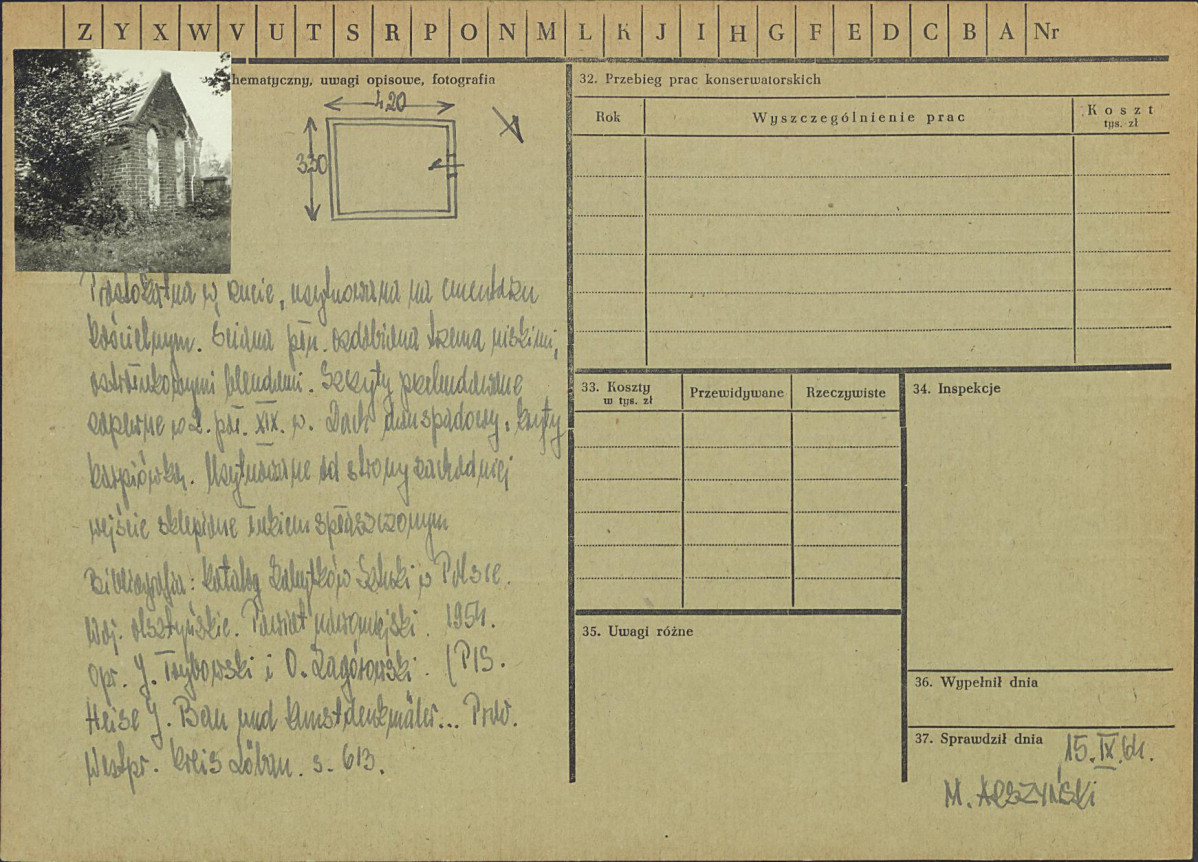 Z Y X W V U T S R P O N M L K J I H G F E D C B A Nr
hematyczny, uwagi opisowe, fotografia
4,20
3,30
Prostokątna w rzucie, usytuowana na cmentarzu
kościelnym. Ściana płn. ozdobiona trzema niskimi,
ostrołukowymi blendami. Szczyty przebudowane
zapewne w 2. poł. XIX. w. Dach dwuspadowy, kryty
karpiówką. Usytuowane od strony zachodniej
wejście sklepione łukiem spłaszczonym
Bibliografia: Katalog Zabytków Sztuki w Polsce.
Woj. olsztyńskie. Powiat nowomiejski. 1954.
opr. J. Frybowski i O. Zagórowski. (PIS.
Heise J. Bau und Kunstdenkmäler... Prow.
Westpr. Kreis Löbau. s. 613.
32. Przebieg prac konserwatorskich
Rok
Wyszczególnienie prac
Koszt
tys. zł
33. Koszty
w tys. zł
Przewidywane
Rzeczywiste
34. Inspekcje
35. Uwagi różne
36. Wypełnił dnia
37. Sprawdził dnia
15.IX.64.
M.